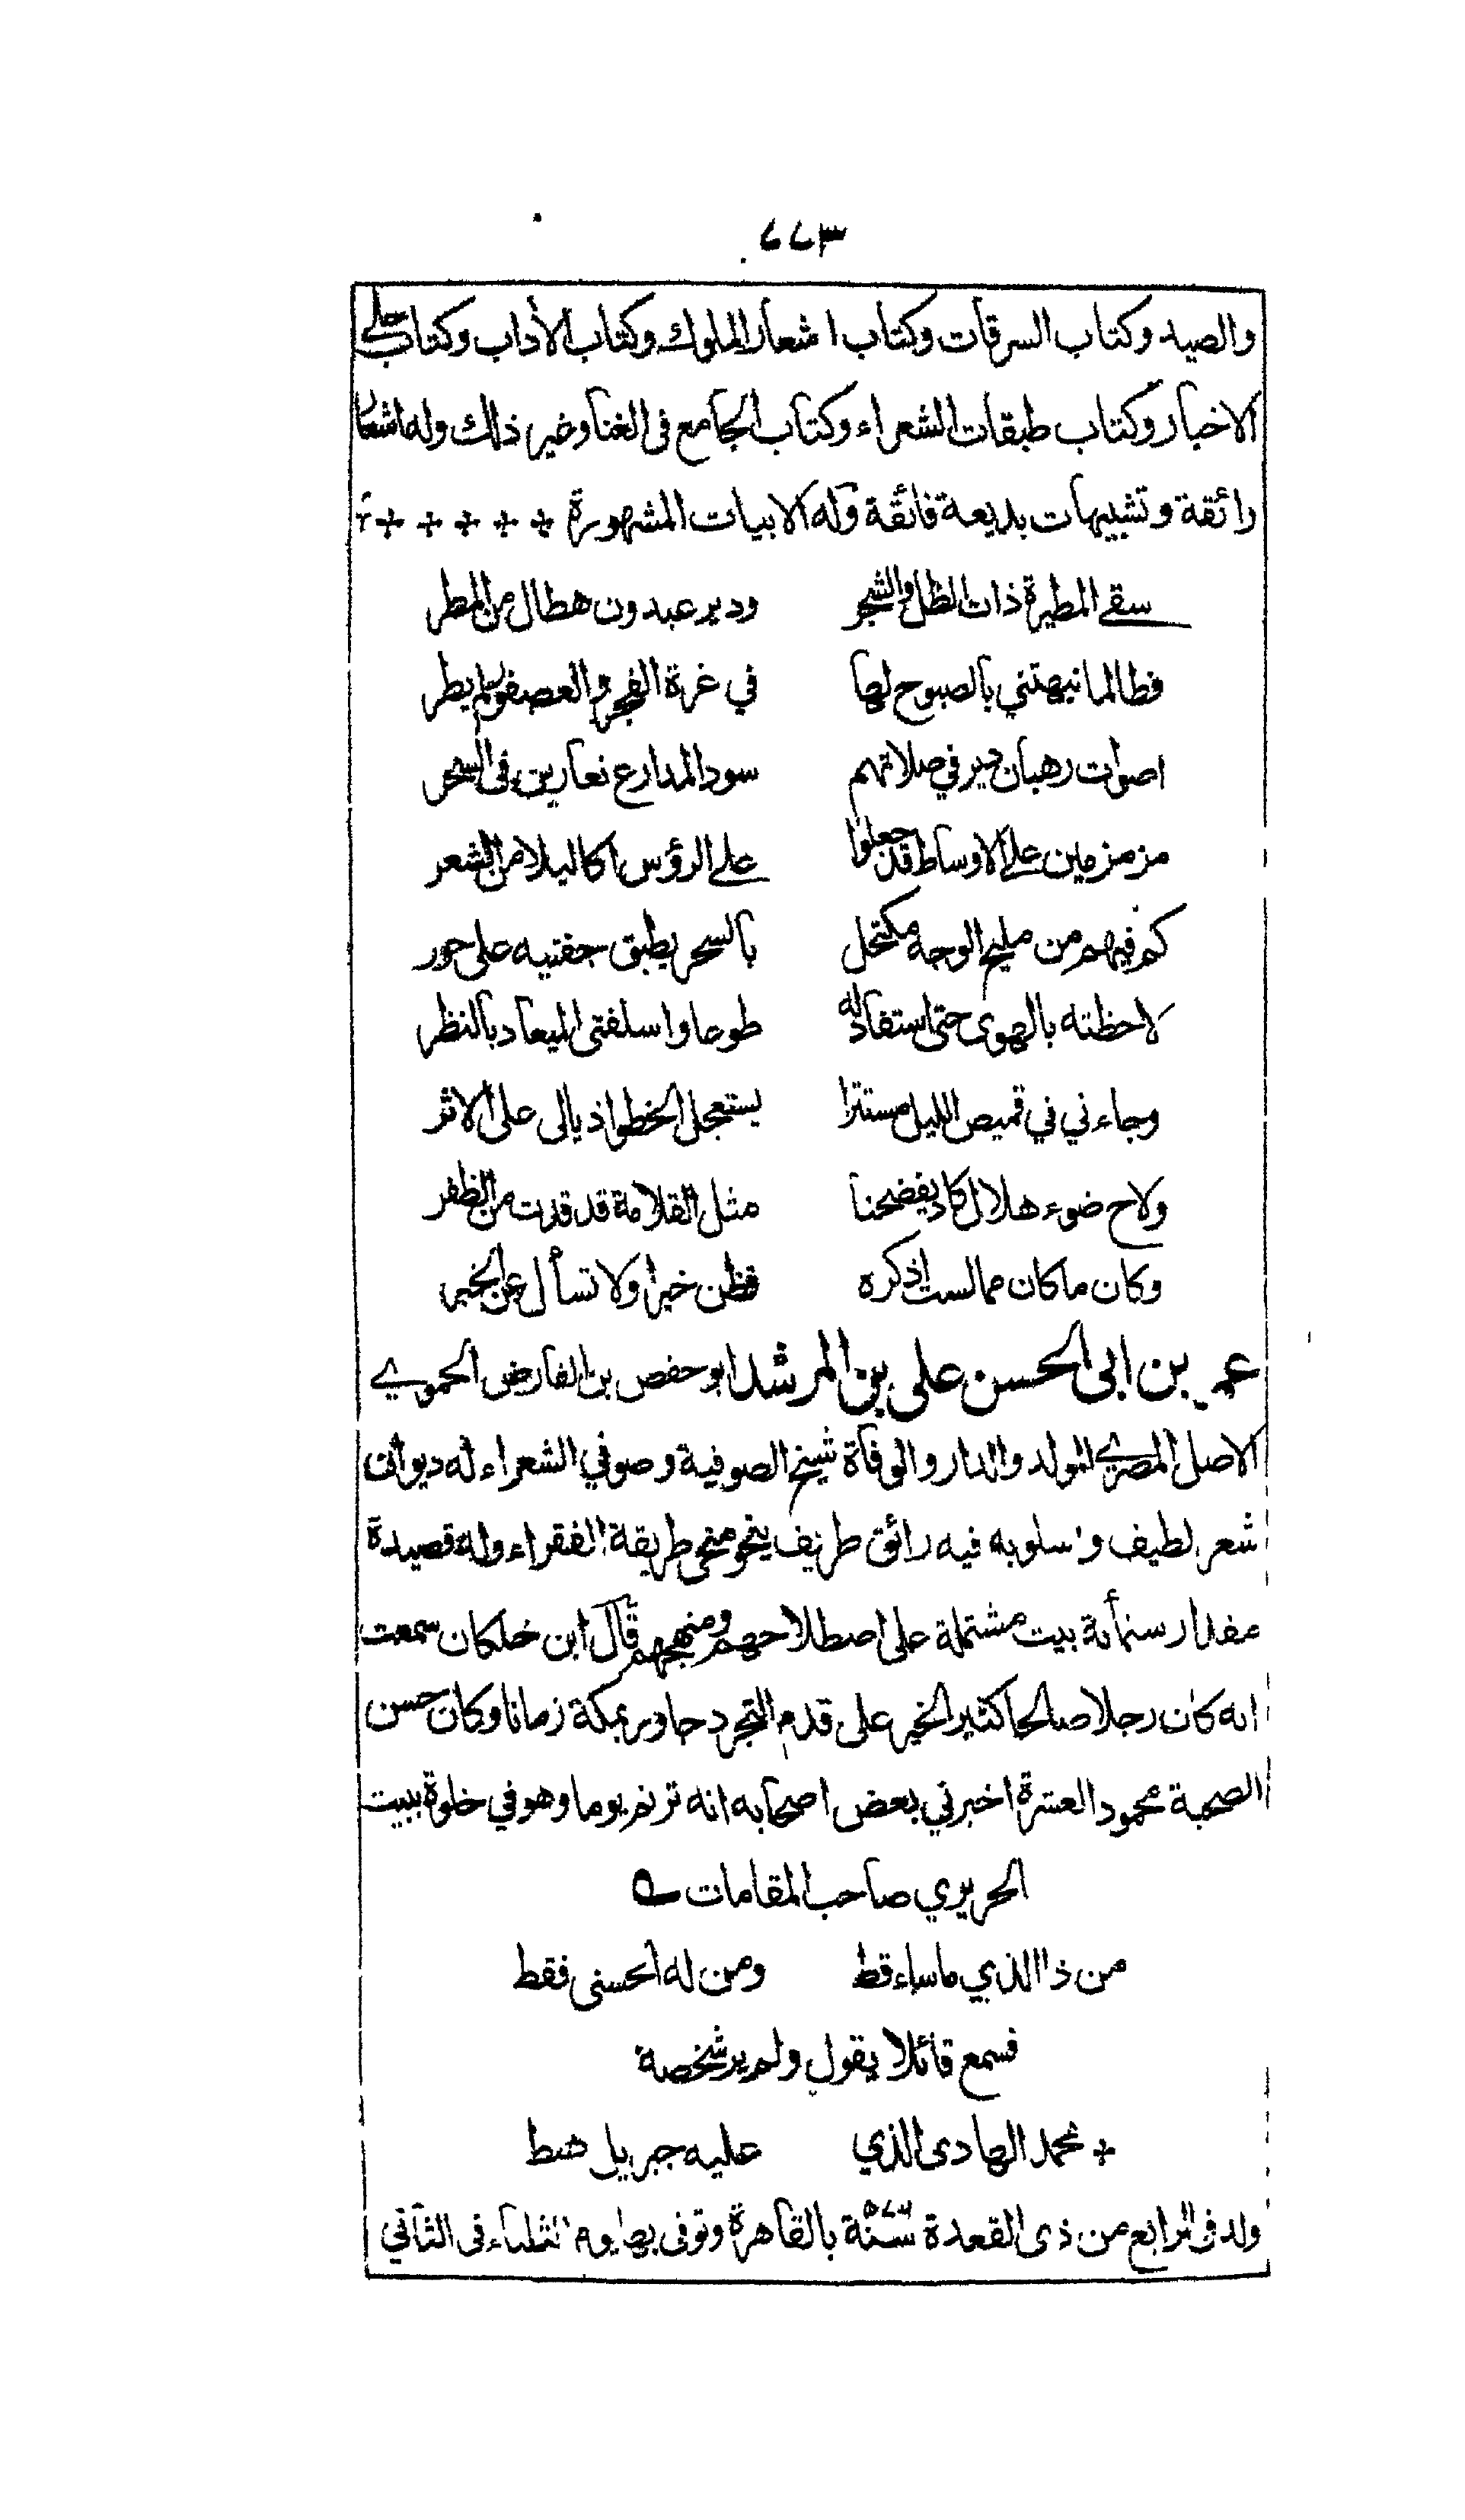 ٢٢٣
والصيد وكتاب السرقات وكتاب اشعار الملوك وكتاب الأداب وكتاب حلى
الاخبار وكتاب طبقات الشعراء وكتاب الجامع فى الغنا وغير ذلك وله اشعار
رائقة وتشبيهات بديعة فائقة وله الابيات المشهورة
سقى المطيرة ذات الظل والشجر ودير عبدون هطال من المطر
فطالما نبهتني بالصبوح لها في غرة الفجر والعصفور لم يطر
اصوات رهبان دير في صلاتهم سود المدارع نعارين فى السحر
مزمزمين على الاوساط قد جعلوا على الرؤس اكاليلا من الشعر
كم فيهم من مليح الوجه مكتحل بالسحر يطبق جفنيه على حور
لاحظته بالهوى حتى استقاد له طوعا واسلفنى الميعاد بالنظر
وجاءني في قميص الليل مستترا يستعجل الخطو اذيالى على الاثر
ولاح ضوء هلال كاد يفضحنا مثل القلامة قد قدت من الظفر
وكان ما كان مما لست اذكره فظن خيرا ولا تسأل عن الخبر
عمر بن ابى الحسن على بن المرشد ابو حفص بن الفارض الحموي
الاصل المصري المولد والدار والوفاة شيخ الصوفية وصوفي الشعراء له ديوان
شعر لطيف واسلوبه فيه رائق طريف ينحو منحى طريقة الفقراء وله قصيدة
مقدار ستمأة بيت مشتملة على اصطلاحهم ومنهجهم قال ابن خلكان سمعت
انه كان رجلا صالحا كثير الخير على قدم التجرد جاور بمكة زمانا وكان حسن
الصحبة محمود العشرة اخبرني بعض اصحابه انه ترنم يوما وهو في خلوة ببيت
الحريري صاحب المقامات
من ذا الذي ما ساء قط ومن له الحسنى فقط
فسمع قائلا يقول ولم ير شخصه
محمد الهادى الذي عليه جبريل هبط
ولد فى الرابع من ذى القعدة سنة بالقاهرة وتوفى بها يوم الثلثاء فى الثاني